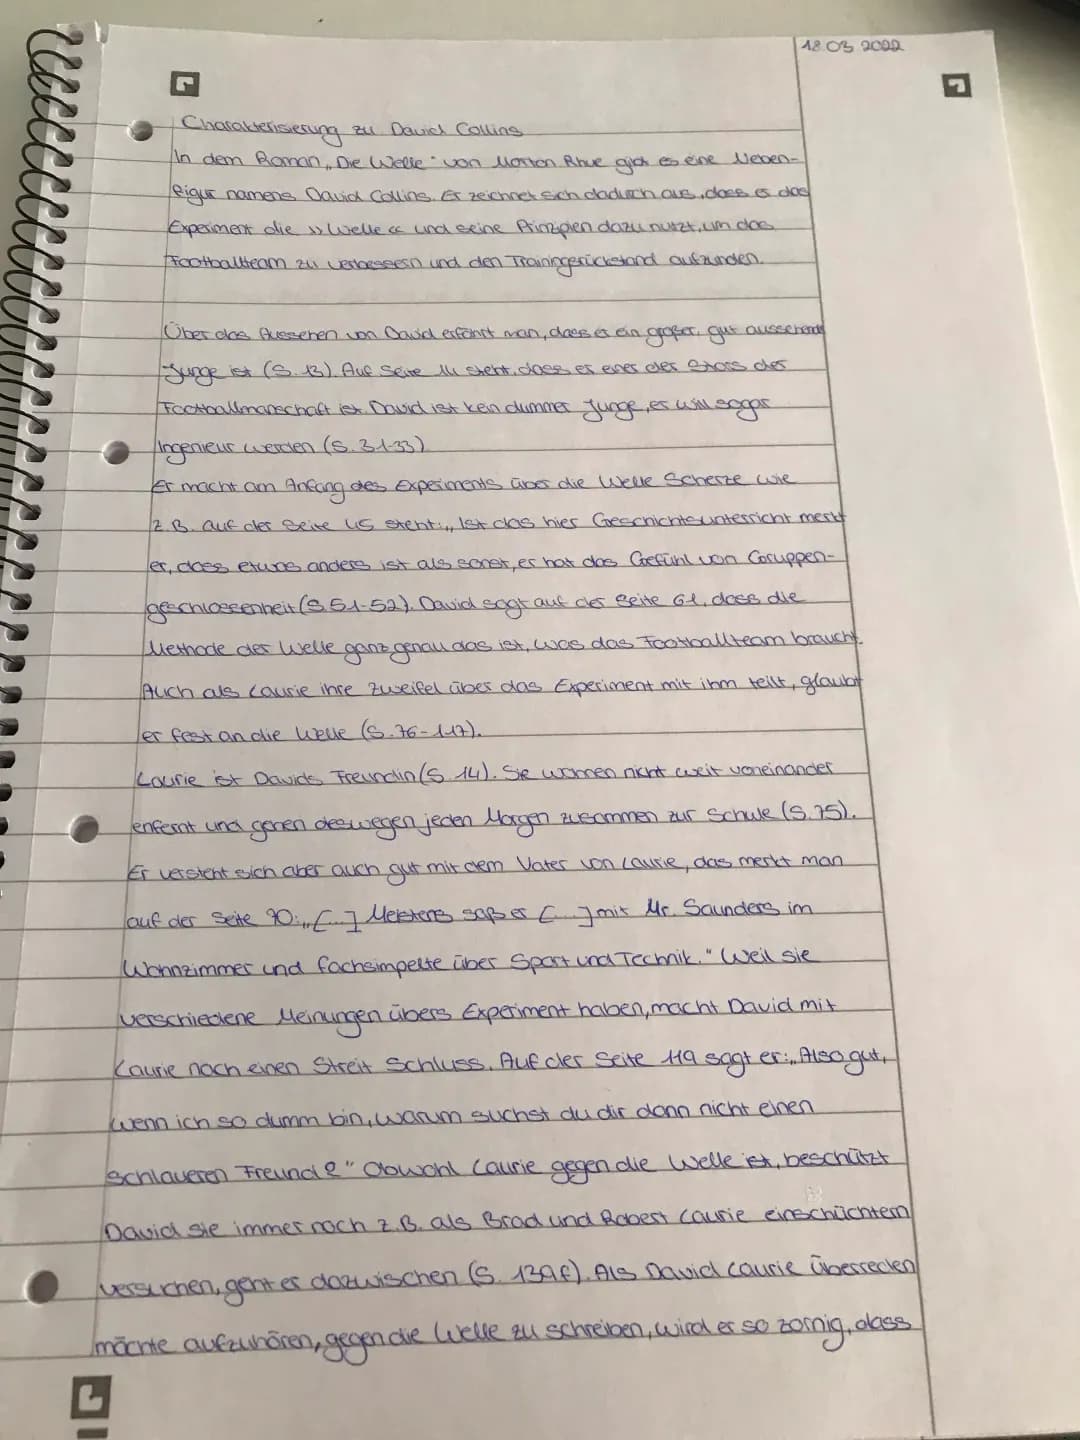 18.03.2022
Charakterisierung zu David Collins
In dem Roman „Die Welle" von Morton Rhue gibt es eine Neben-
figur namens David Collins. Er zeichnet sich dadurch aus, dass er das
Experiment die »Welle« und seine Prinzipien dazu nutzt, um das
Footballteam zu verbessern und den Trainingerückstand aufzurunden.
Über das Aussehen von David erfährt man, dass er ein großer, gut aussehende
Junge ist (S. 13). Auf Seite 14 steht, dass er einer der Stars der
Footballmanschaft ist. David ist kein dummer Junge, er will sogar
Ingenieur werden (S. 31-33).
Er macht am Anfang des Experiments über die Welle Scherze wie
z.B. auf der Seite 45 steht: „Ist das hier Geschichtsunterricht merkt
er, dass etwas anders ist als sonst, er hat das Gefühl von Gruppen-
geschlossenheit (S.51-52). David sagt auf der Seite 61, dass die
Methode der Welle ganz genau das ist, was das Footballteam braucht.
Auch als Laurie ihre Zweifel über das Experiment mit ihm teilt, glaubt
er fest an die Welle (S. 76-117).
Laurie ist Davids Freundin (S. 14). Sie wohnen nicht weit voneinander
enfernt und gehen deswegen jeden Morgen zusammen zur Schule (S. 75).
Er versteht sich aber auch gut mit dem Vater von Laurie, das merkt man
auf der Seite 90: „[...] Meistens saß er [...] mit Mr. Saunders im
Wohnzimmer und fachsimpelte über Sport und Technik." Weil sie
verschiedene Meinungen übers Experiment haben, macht David mit
Laurie nach einen Streit Schluss. Auf der Seite 119 sagt er: „Also gut,
wenn ich so dumm bin, warum suchst du dir dann nicht einen
schlaueren Freund?" Obwohl Laurie gegen die Welle ist, beschützt
David sie immer noch z.B. als Brad und Robert Laurie einschüchtern
versuchen, geht er dazwischen (S. 139f). Als David Laurie überreden
möchte aufzuhören, gegen die Welle zu schreiben, wird er so zornig, dass